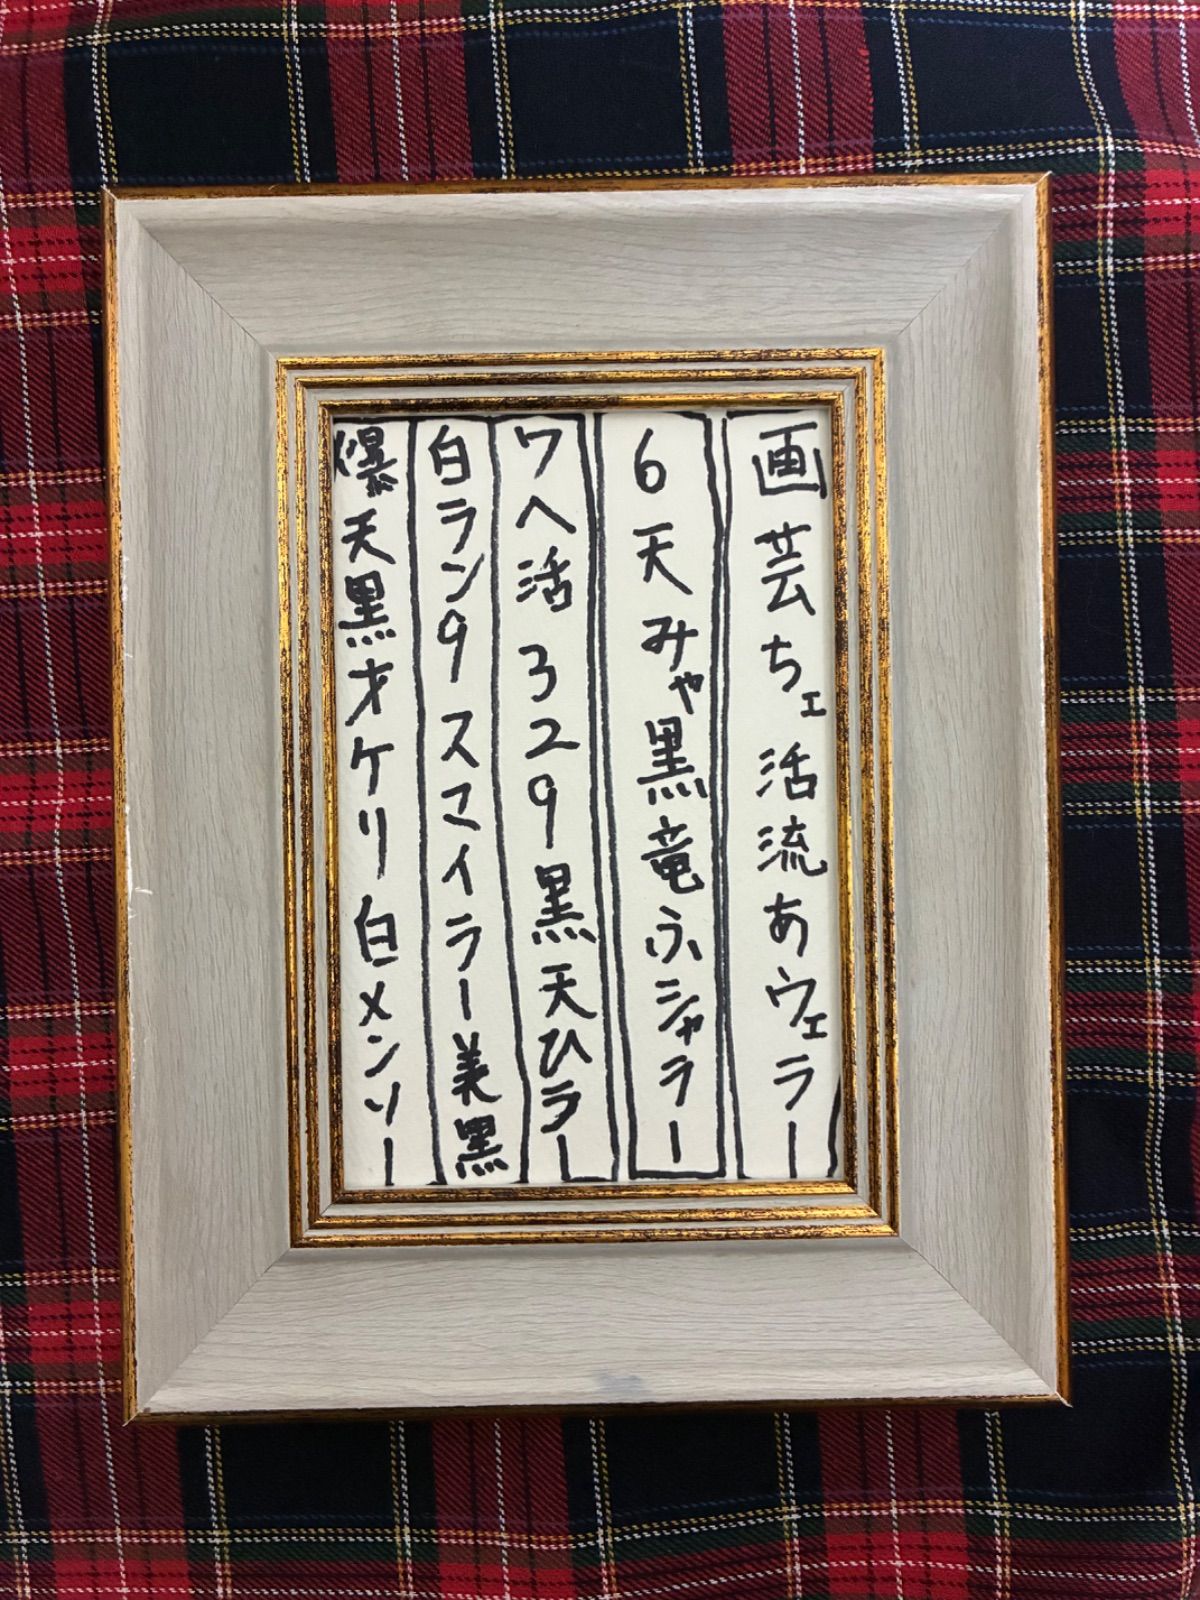 画芸ちェ活流あウェラー
6天みゃ黒竜ふジャラー
ワヘ活ろ29黒天ひラー
白ラン9スマイラー美黒
爆天黒才ケリ白メンソー